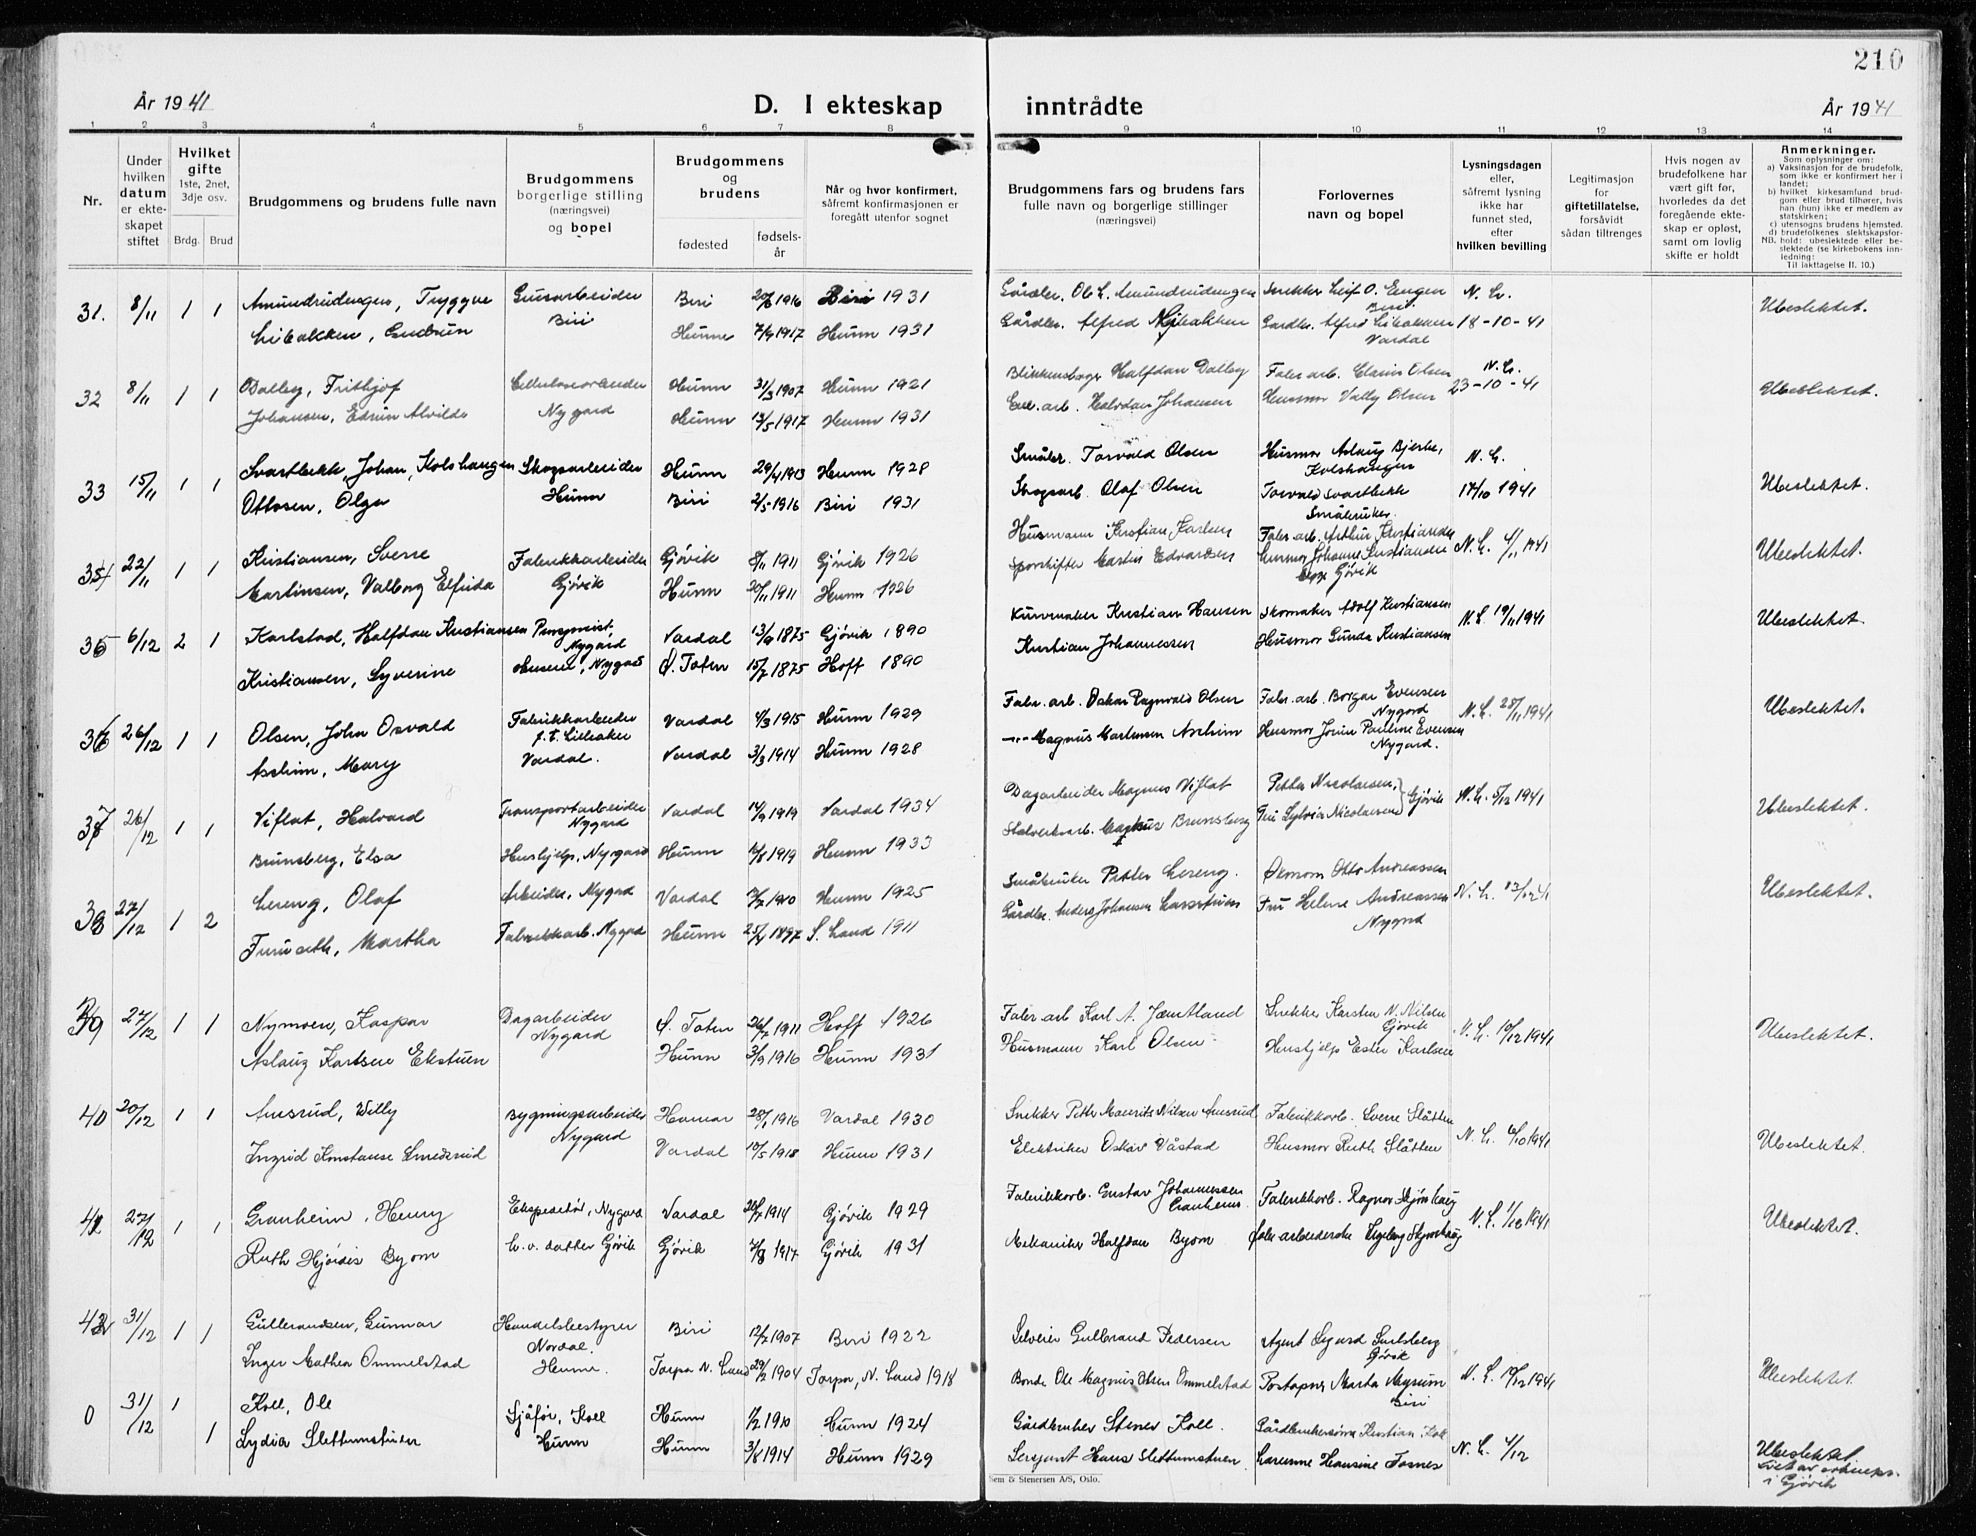 210
År 1941
D. I ekteskap inntrådte
År 1941
1 2 3 4 5 6 7 8 9 10 11 12 13 14
Nr.
Under hvilken datum er ekteskapet stiftet
Hvilket gifte 1ste, 2net, 3dje osv.
Brdg. Brud
Brudgommens og brudens fulle navn
Brudgommens borgerlige stilling (næringsvei) og bopel
Brudgommens og brudens
fødested
fødselsår
Når og hvor konfirmert, såfremt konfirmasjonen er foregått utenfor sognet
Brudgommens fars og brudens fars fulle navn og borgerlige stillinger (næringsvei)
Forlovernes navn og bopel
Lysningsdagen eller, såfremt lysning ikke har funnet sted, efter hvilken bevilling
Legitimasjon for giftetillatelse, forsåvidt sådan tiltrenges
Hvis nogen av brudefolkene har vært gift før, hvorledes da det foregående ekteskap er opløst, samt om lovlig skifte er holdt
Anmerkninger.
Som oplysninger om:
a) Vaksinasjon for de brudefolk, som ikke er konfirmert her i landet;
b) hvilket kirkesamfund brudgom eller brud tilhører, hvis han (hun) ikke er medlem av statskirken;
c) utensogns brudens hjemsted.
d) brudefolkenes slektskapsforhold: ubeslektede eller beslektede (se kirkebokens innledning:
NB. Til iakttagelse II. 10.)
31. 8/11 1 1 Amundrudengen, Tryggve Gårdsarbeider Biri Biri 1916 Biri 1931 Gårdbr. Ole L. Amundrudengen Snekker Leif O. Engen Biri N. L. Ubeslektet.
Libakken, Gudrun Hunn 7/9 1917 Hunn 1931 Gårdbr. Alfred Libakken Gårdbr. Alfred Libakken Vardal 18-10-41
32 8/11 1 1 Dalby, Frithjof Cellulosearbeider Hunn 31/3 1907 Hunn 1921 Blikkenslager Halfdan Dalby Fabr. arb. Claus Olsen N. L. 23-10-41 Ubeslektet.
Johansen, Edrun Alvilde Nygard Hunn 13/5 1917 Hunn 1931 Cell. arb. Halvdan Johansen Husmor Valby Olsen
33 15/11 1 1 Svartbekk, Johan, Kolshaugen Skogsarbeider Hunn 29/4 1913 Hunn 1928 Småbr. Torvald Olsen Husmor Aslaug Bjerke, Kolshaugen N. L. Ubeslektet.
Ottosen, Olga Hunn Biri 2/5 1916 Biri 1931 Skogsarb. Olaf Olsen Torvald Svartbekk Småbruker 17/10 1941
34 22/11 1 1 Kristiansen, Sverre Fabrikkarbeider Gjøvik 8/11 1911 Gjøvik 1926 Husmann Kristian Karlsen Fabr. arb. Arthur Kristiansen N. L. 4/11 1941 Ubeslektet.
Martinsen, Valborg Elfrida Gjøvik Hunn 20/11 1911 Hunn 1926 Sporskifter Martin Edvardsen Husmor Johanne Kristiansen Gjøvik
35 6/12 2 1 Karlstad, Halfdan Kristiansen Pensjonist. Nygard Vardal 13/9 1875 Gjøvik 1890 Kurvmaker Kristian Hansen Skomaker Adolf Kristiansen N. L. 19/11 1941 Ubeslektet.
Kristiansen, Syverine Nygard Ø. Toten 15/7 1875 Hoff 1890 Kristian Johannessen Husmor Gunda Kristiansen
36 26/12 1 1 Olsen, John Osvald Fabrikkarbeider Vardal 4/3 1915 Hunn 1929 Fabr. arb. Oskar Ragnvald Olsen Fabr. arb. Borgar Evensen Nygard N. L. 25/11 1941 Ubeslektet.
Aschim, Mary Vardal. Vardal 3/3 1914 Hunn 1928 —"— Magnus Martinsen Aschim Husmor Jorun Pauline Evensen Nygard.
37 26/12 1 1 Viflat, Halvard Transportarbeider Nygard Vardal 14/9 1919 Vardal 1934 Dagarbeider Magnus Viflat Petter Nicolaisen, Gjøvik N. L. 5/12 1941 Ubeslektet.
Brunsberg, Elsa Hushjelp, Nygard Hunn 1919 Hunn 1933 Stålverksarb. Markus Brunsberg Fru Sylvia Nicolaisen
38 27/12 1 2 Lereng, Olaf Arbeider, Nygard Vardal 1910 Hunn 1925 Småbruker Petter Lereng. Otto Andreassen N. L. 12/12 41 Ubeslektet.
Furuseth, Martha Fabrikkarb. Nygard Hunn 25/4 1897 S. Land 1911 Gårdbr. Anders Johansen Fru Helene Andreassen Nygard
39 27/12 1 1 Nymoen, Kaspar Dagarbeider Ø. Toten 26/7 1911 Hoff 1926 Fabr. arb Karl A. Jæmtland Snekker Karsten N. Nilsen Gjøvik N. L. 10/12 1941 Ubeslektet.
Aslaug Karlsen Ekstuen Nygard Hunn 3/9 1916 Hunn 1931 Husmann Karl Olsen Hushjelp Ester Karlsen
40 20/12 1 1 Amsrud, Willy Bygningsarbeider Hamar 28/1 1916 Vardal 1930 Snekker Petter Mauritz Nilsen Amsrud Fabrikkarb. Sverre Slåtten N. L. 6/10 1941 Ubeslektet.
Ingrid Konstanse Smedsrud Nygard Vardal 10/5 1918 Hunn 1931 Elektriker Oskar Våstad Husmor Ruth Slåtten
41 27/12 1 1 Granheim, Henry Ekspeditør, Nygard Vardal 1914 Gjøvik 1929 Fabrikkarb. Gustav Johannessen Granheim Fabrikkarb. Ragnar Skjønhaug N. L. 1941 Ubeslektet.
Ruth Hjørdis Byom h.v. datter Gjøvik Gjøvik 7/8 1917 Gjøvik 1931 Mekaniker Halfdan Byom
42 31/12 1 1 Gulbrandsen, Gunnar Handelsbestyrer Biri 12/7 1907 Biri 1922 Selveier Gulbrand Pedersen Agent Sigurd Gjøvik
Inger Mathea Ommelstad Nordal. Hunn. Torpa N. Land 29/2 1904 Torpa, N. Land 1918 Bonde Ole Magnus Olsen Ommelstad Poståpner Marta Mysum Biri N. L. 12/12 1941 Ubeslektet.
0 31/12 1 Koll, Ole Sjåfør, Koll Hunn 1/2 1910 Hunn 1924 Gårdbruker Stener Koll. Gårdbrukersønn Kristian Koll
1 Lydia Slettumstuen Hunn Hunn 3/8 1914 Hunn 1929 Sersjant Hans Slettumstuen N. L. 4/12 Ubeslektet
i Gjøvik
Sem & Stenersen A/S, Oslo.